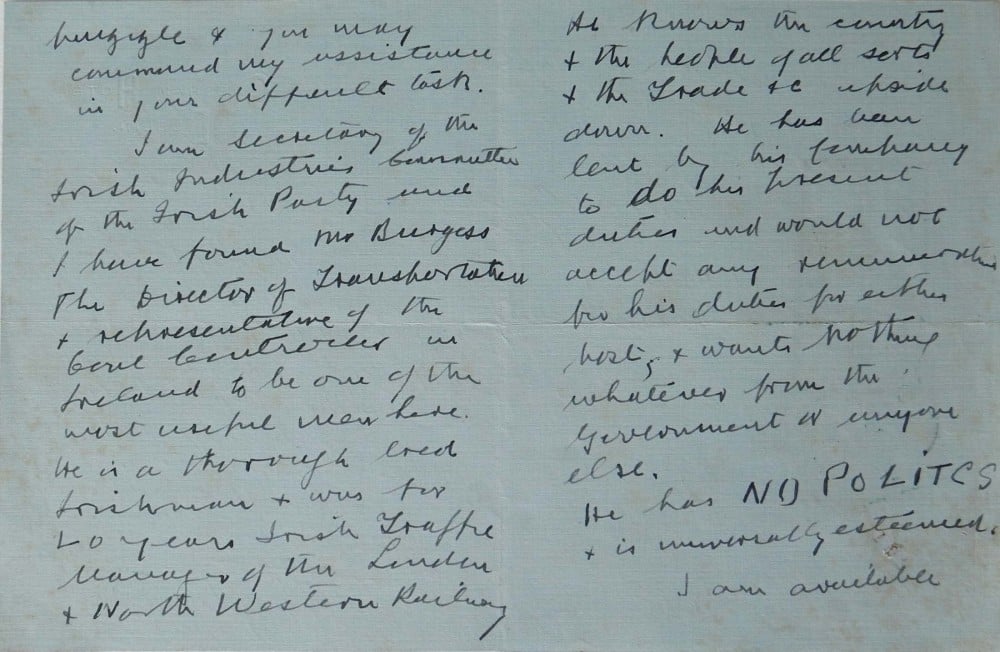 & you may
command my assistance
in your difficult task.
I am Secretary of the
Irish Industries Committee
of the Irish Party and
I have found Mr Burgess
The Director of Transportation
& representative of the
Coal Controller in
Ireland to be one of the
most useful men here.
He is a thorough bred
Irishman & was for
20 years Irish Traffic
Manager of the London
& North Western Railway
He knows the country
& the people of all sorts
& the Trade &c upside
down. He has been
lent by his Company
to do his present
duties and would not
accept any remuneration
for his duties for either
post, & wants Nothing
whatever from the
Government or anyone
else.
He has NO POLITCS
& is universally esteemed.
I am available